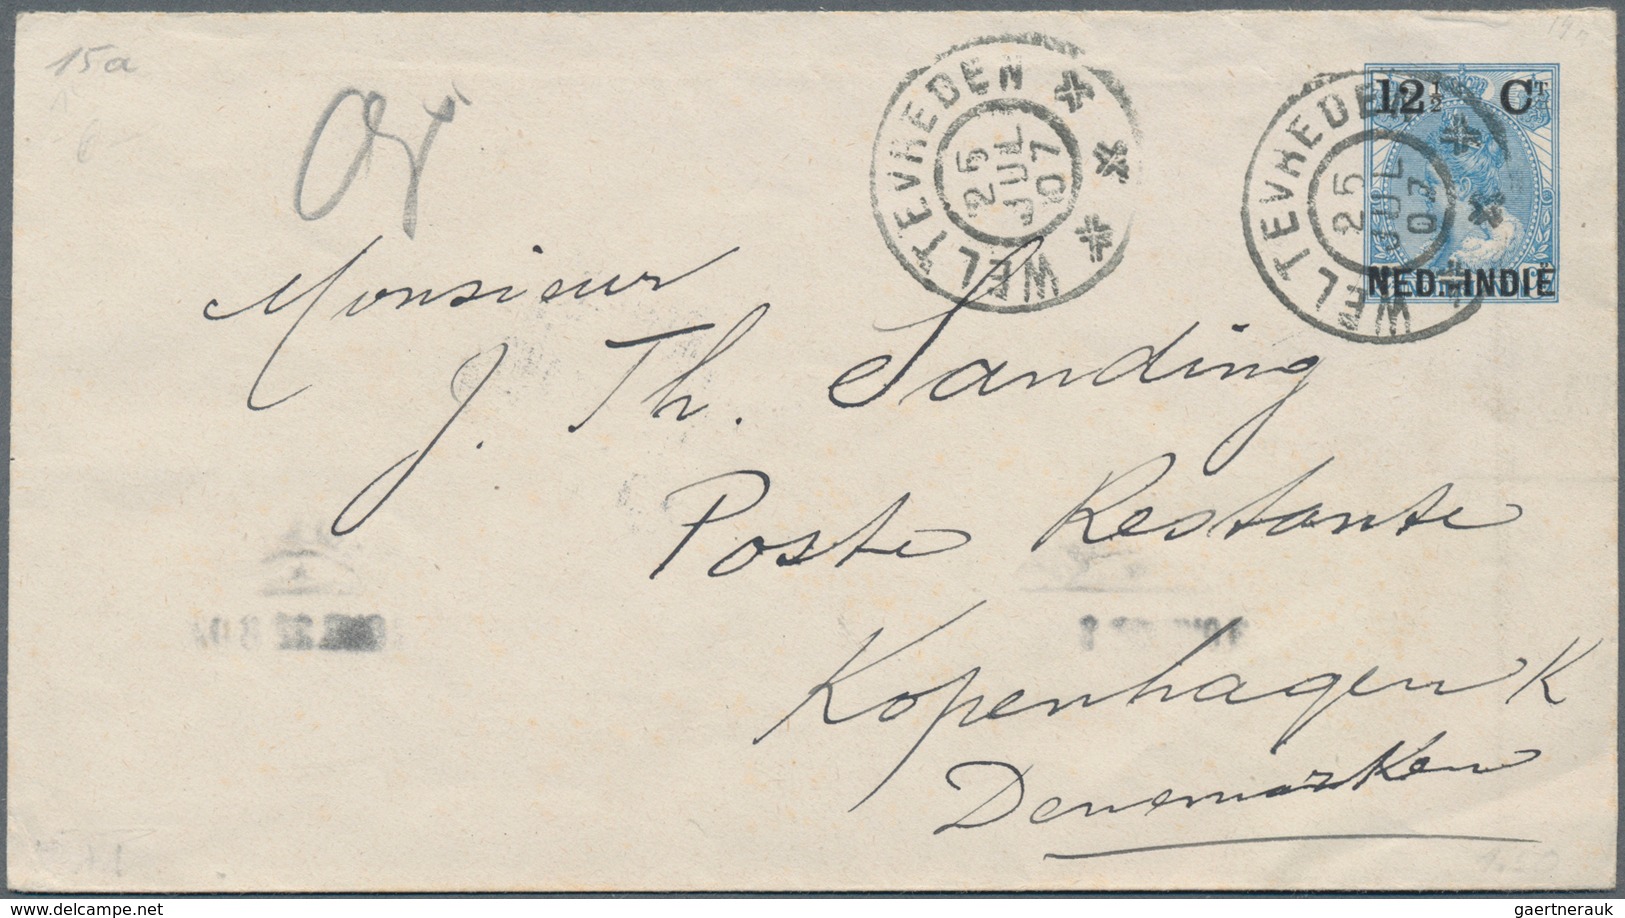 15a
WELTEVREDEN
25
JUL
07
WELTEVREDEN
25
JUL
07
12½ CT
NED.-INDIË
Monsieur
J. Th. Sanding
Poste Restante
Kopenhagen K
Denemarken
© www.delcampe.net
gaertnerauk